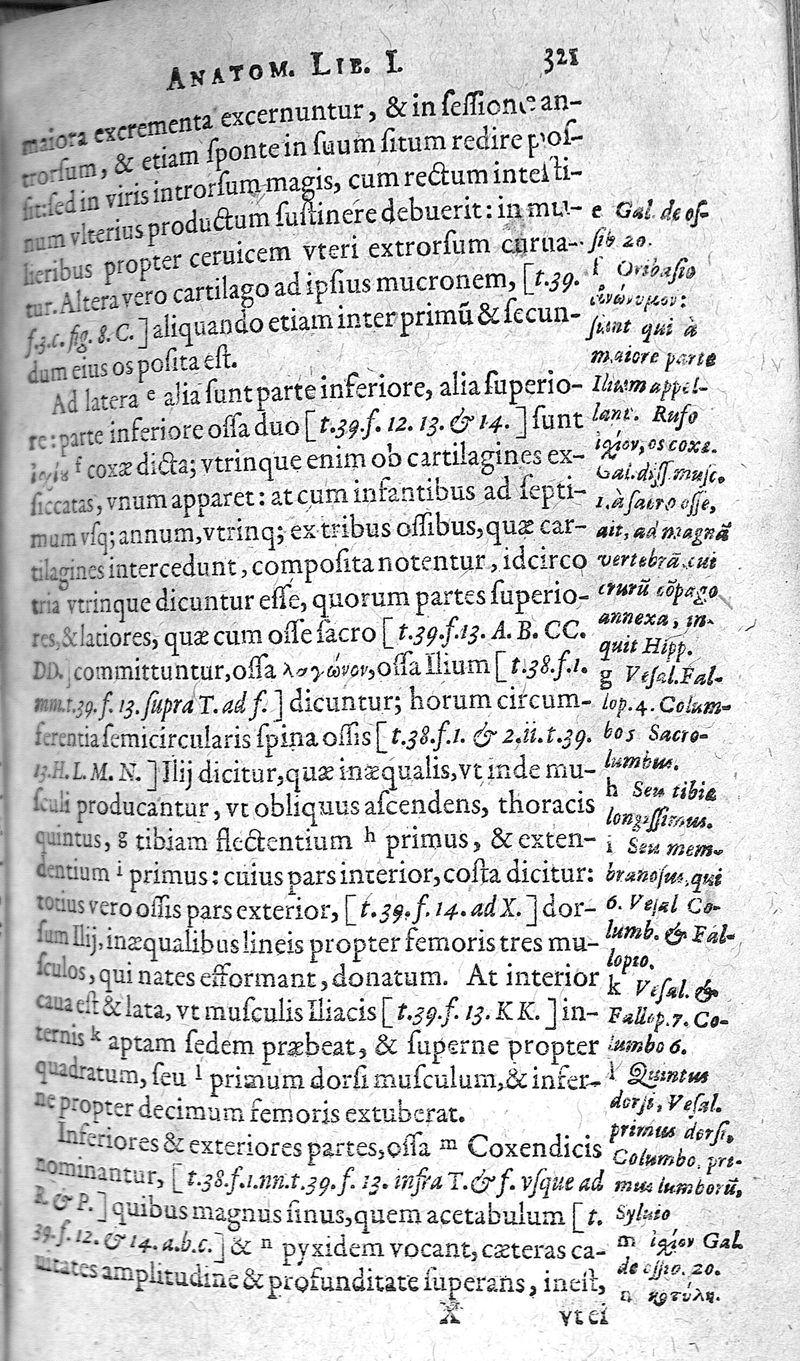 ANATOM. LIB. I. 321
maiora excrementa excernuntur, & in ſeſſione an-
trorſum, & etiam ſponte in ſuum ſitum redire poſ-
ſit: ſed in viris introrſum magis, cum rectum inteſti-
num vlterius productum ſuſtinere debuerit: in mu-
lieribus propter ceruicem vteri extrorſum curua-
tur. Altera vero cartilago ad ipſius mucronem, [t.39.
f.3.c. fig. 8. C.] aliquando etiam inter primũ & ſecun-
dum eius os poſita eſt.
Ad latera e alia ſunt parte inferiore, alia ſuperio-
re: parte inferiore oſſa duo [t.39.f. 12. 13. & 14.] ſunt
f coxæ dicta; vtrinque enim ob cartilagines ex-
ſiccatas, vnum apparet: at cum infantibus ad ſepti-
mum vſq; annum, vtrinq; ex tribus oſſibus, quæ car-
tilagines intercedunt, compoſita notentur, idcirco
tria vtrinque dicuntur eſſe, quorum partes ſuperio-
res, & latiores, quæ cum oſſe ſacro [t.39.f.13. A. B. CC.
DD.] committuntur, oſſa λαγώνον, oſſa Ilium [t.38.f.1.
mm.t.39.f. 13. ſupra T. ad f.] dicuntur; horum circum-
ferentia ſemicircularis ſpina oſſis [t.38.f.1. & 2.ii.t.39.
13.H. L. M. N.] Ilij dicitur, quæ inæqualis, vt inde mu-
ſculi producantur, vt obliquus aſcendens, thoracis
quintus, g tibiam flectentium h primus, & exten-
dentium i primus: cuius pars interior, coſta dicitur:
totius vero oſſis pars exterior, [t.39.f.14. ad X.] dor-
ſum Ilij, inæqualibus lineis propter femoris tres mu-
ſculos, qui nates efformant, donatum. At interior
caua eſt & lata, vt muſculis Iliacis [t.39.f. 13. KK.] in-
ternis k aptam ſedem præbeat, & ſuperne propter
quadratum, ſeu l primum dorſi muſculum, & infer-
ne propter decimum femoris extuberat.
Inferiores & exteriores partes, oſſa m Coxendicis
nominantur, [t.38.f.1.nn.t.39.f. 13. infra T. & f. vſque ad
R. & P.] quibus magnus ſinus, quem acetabulum [t.
39.f.12. & 14. a.b.c.] & n pyxidem vocant, cæteras ca-
uitates amplitudine & profunditate ſuperans, ineſt,
X vtei
e Gal. de oſ-
ſib 20.
f Oribaſio
ſunt qui à
maiore parte
Ilium appel-
lant. Rufo
ἰσχίον, os coxæ.
Gal. diſſ. muſc.
1. à ſacro oſſe,
ait, ad magnā
vertebrā, cui
crurũ cõpago
annexa, in-
quit Hipp.
g Veſal. Fal-
lop. 4. Colum-
bos Sacro-
lumbus.
h Seu tibiæ
longiſſimus.
i Seu mem-
branoſus, qui
6. Veſal Co-
lumb. & Fal-
lopio.
k Veſal. &
Fallop. 7. Co-
lumbo 6.
l Quintus
dorſi, Veſal.
primus dorſi,
Columbo, pri-
mus lumborũ,
Syluio
m ἰσχίον Gal.
de oſſib. 20.
n κοτύλη.